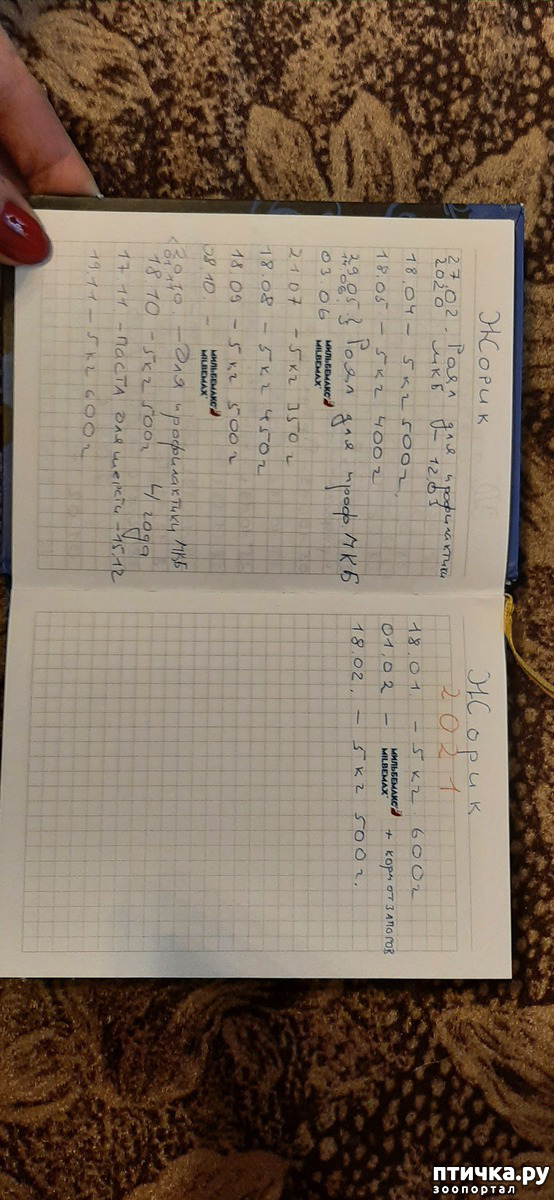 Жорик
27.02. Роял для профилактики
2020 МКБ – 12.03
18.04 – 5 кг 500 г.
18.05 – 5 кг 400 г
29.05 } Роял для проф. МКБ
03.06 МИЛЬБЕМАКС MILBEMAX
21.07 – 5 кг 350 г
18.08 – 5 кг 450 г
18.09 – 5 кг 500 г
08.10. – МИЛЬБЕМАКС MILBEMAX
– для профилактики МКБ
18.10 – 5 кг 500 г 4 года
17.11 – паста для шерсти – 15.12
19.11 – 5 кг 600 г
Жорик
2021
18.01. – 5 кг 600 г
01.02 – МИЛЬБЕМАКС MILBEMAX + корм от запоров
18.02. – 5 кг 500 г.
птичка.ру
зоопортал